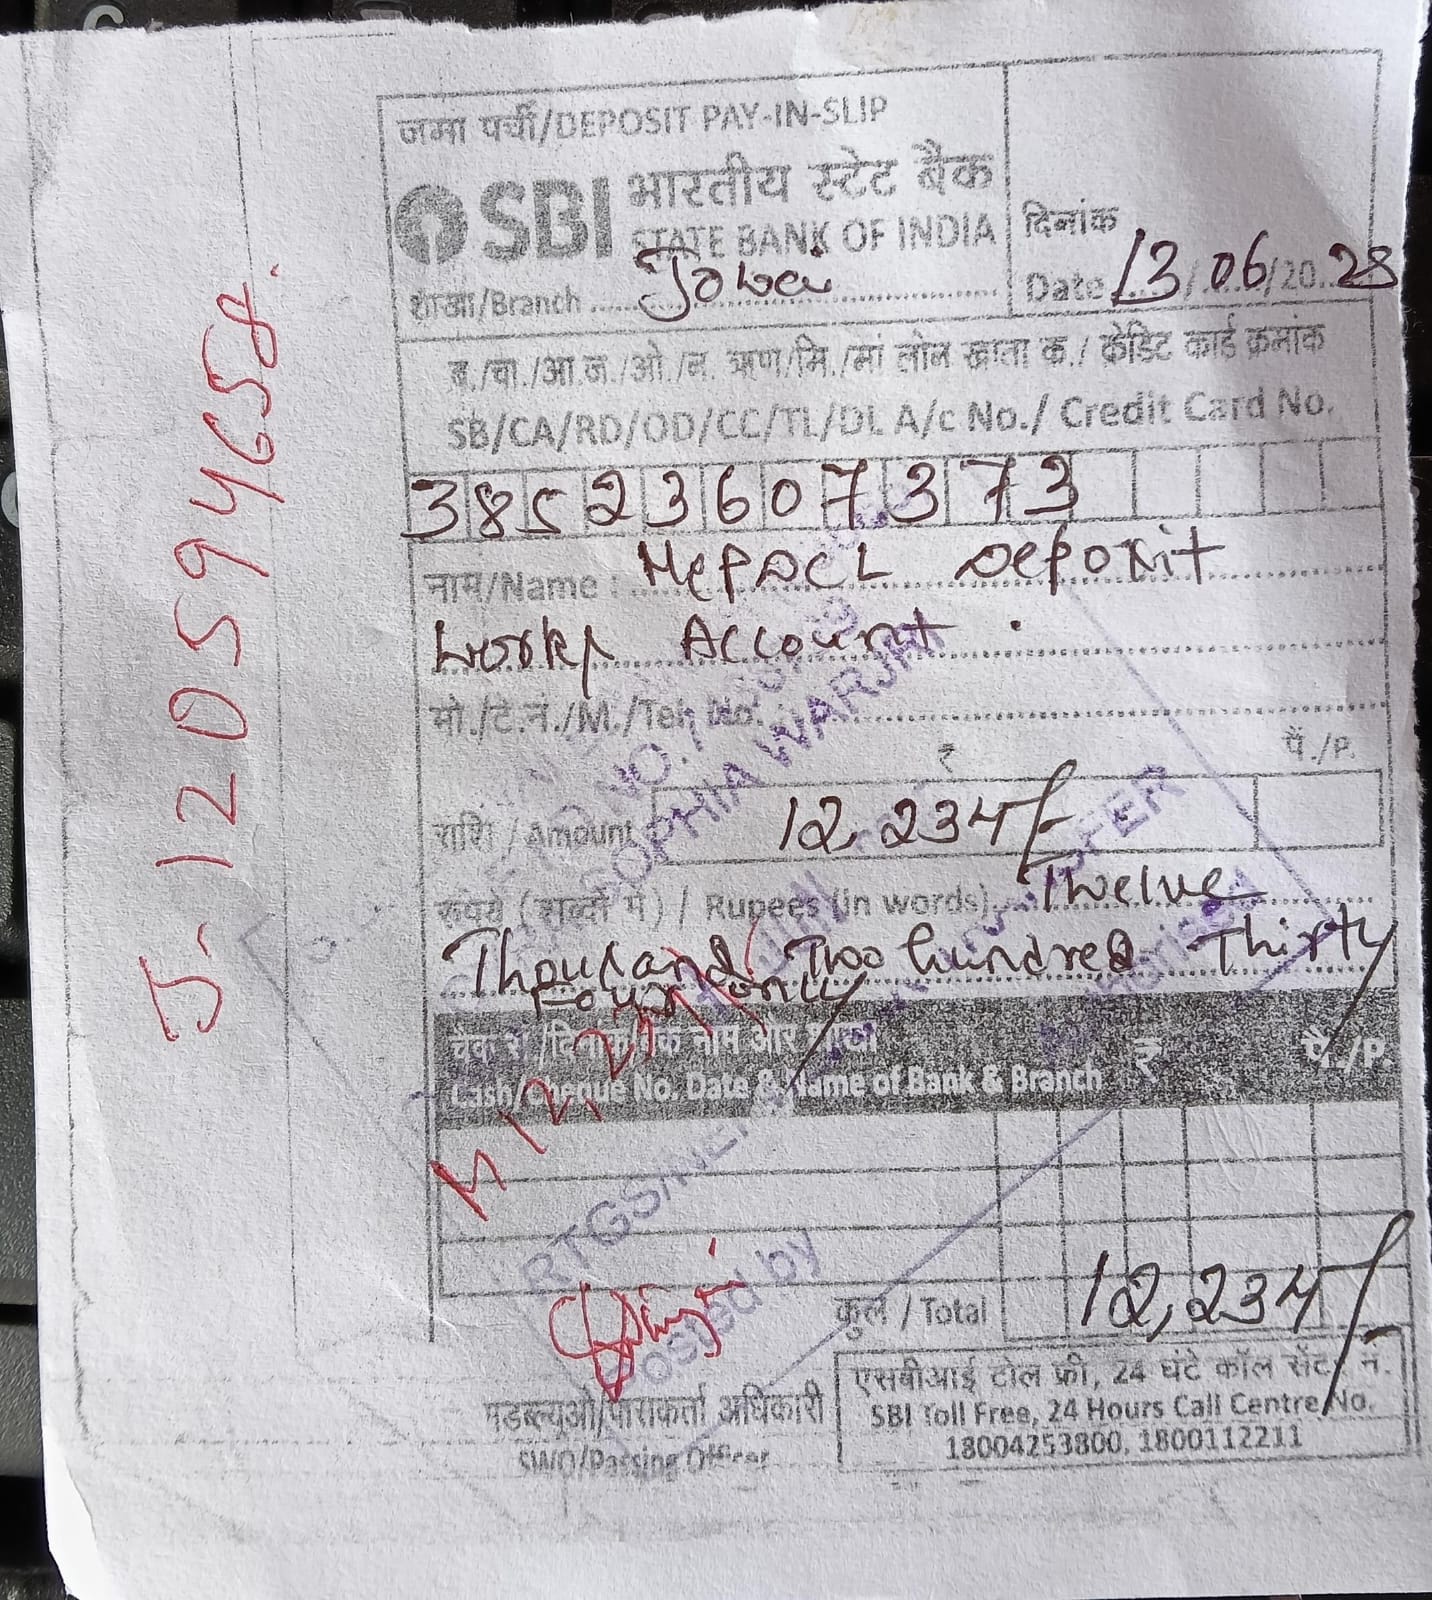 जमा पर्ची/DEPOSIT PAY-IN-SLIP
SBI भारतीय स्टेट बैंक
STATE BANK OF INDIA
शाखा/Branch Jowai
दिनांक
Date 13/06/20
ब./चा./आ.ज./ओ./न. ऋण/मि./मां लोन खाता क./ क्रेडिट कार्ड क्रमांक
SB/CA/RD/OD/CC/TL/DL A/c No./ Credit Card No.
38523607373
नाम/Name : MePDCL Deposit
Works Account.
मो./टे.नं./M./Tel. No.
₹ पै./P.
राशि / Amount 12,234/-
रूपये (शब्दों में) / Rupees (in words) Twelve
Thousand Two hundred Thirty
Four only
चेक सं /दिनांक बैंक नाम और शाखा
Cash/Cheque No. Date & Name of Bank & Branch ₹ पै./P.
कुल / Total 12,234/-
SWO/Passing Officer
एसबीआई टोल फ्री, 24 घंटे कॉल सेंटर नं.
SBI Toll Free, 24 Hours Call Centre No.
18004253800, 1800112211
SOPHIA WARJRI
Posted by